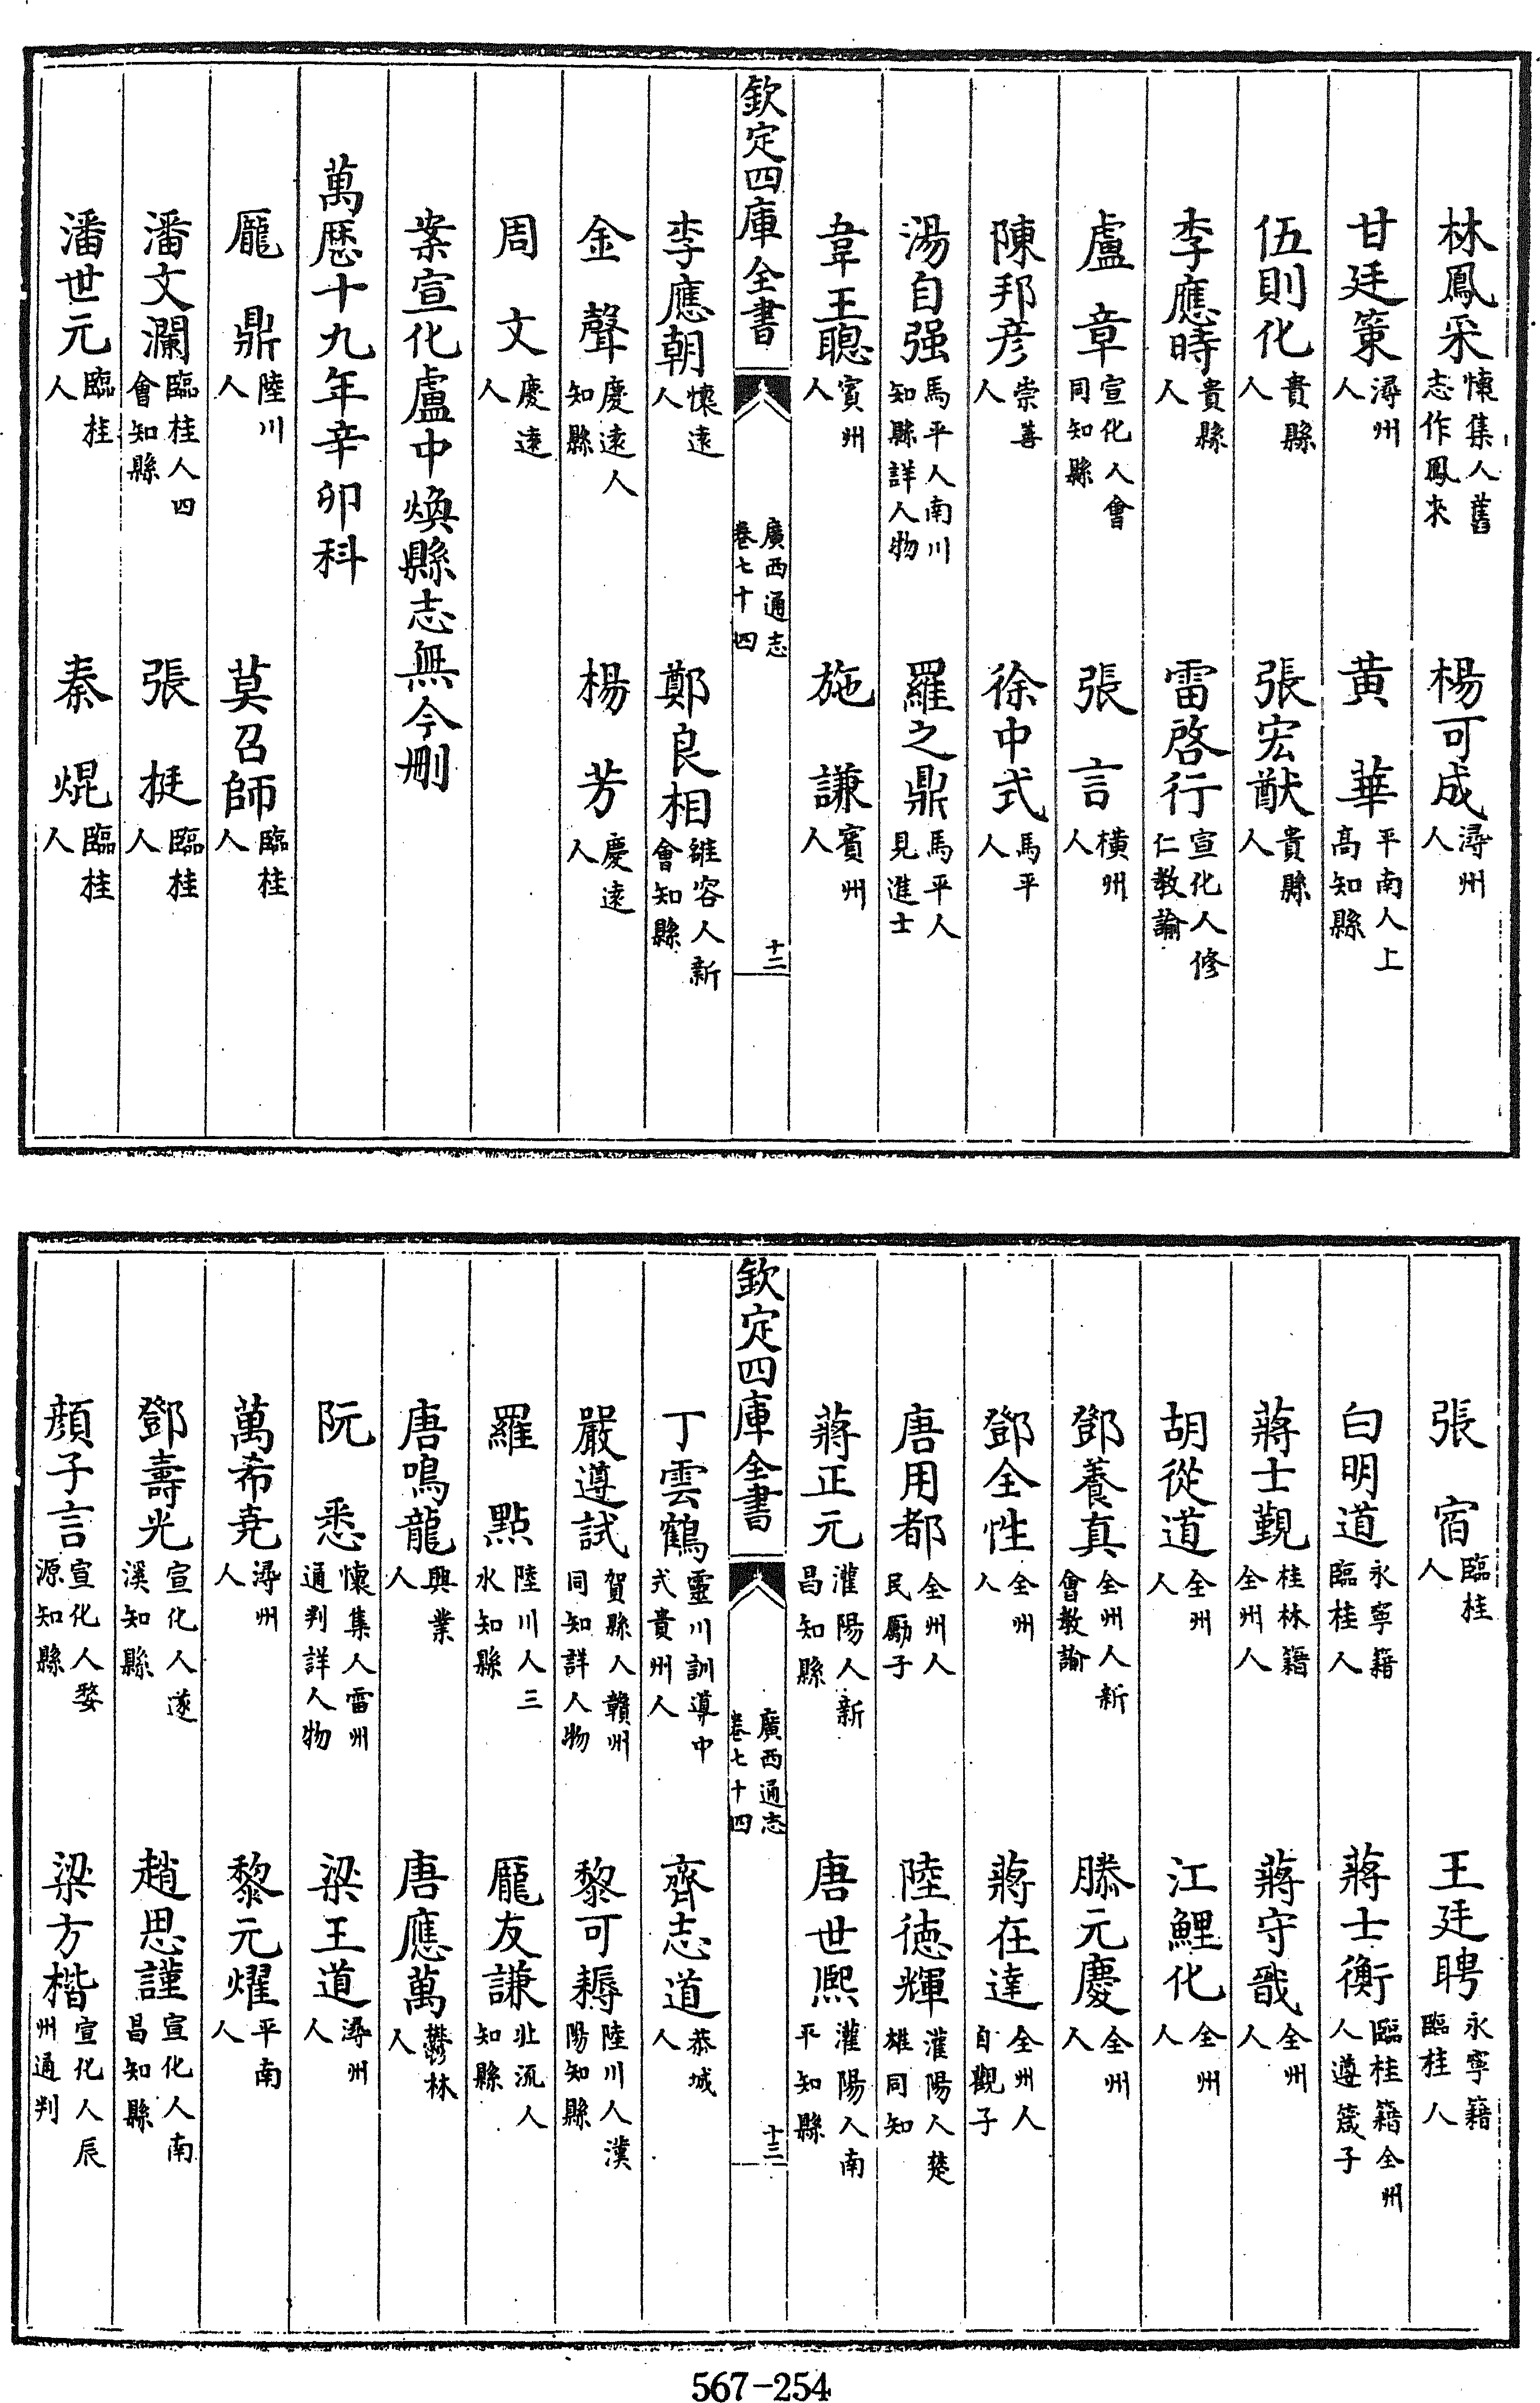 林鳳采懷集人舊志作鳳來　楊可成潯州人
甘廷策潯州人　黄華平南人上高知縣
伍則化貴縣人　張宏猷貴縣人
李應時貴縣人　雷啓行宣化人修仁教諭
盧章宣化人會同知縣　張言橫州人
陳邦彦崇善人　徐中式馬平人
湯自强馬平人南川知縣詳人物　羅之鼎馬平人見進士
韋王聰賓州人　施謙賓州人
欽定四庫全書　廣西通志卷七十四　十二
李應朝懷遠人　鄭良相雒容人新會知縣
金聲慶遠人知縣　楊芳慶遠人
周文慶遠人
案宣化盧中煥縣志無今刪
萬歷十九年辛卯科
龎鼎陸川人　莫召師臨桂人
潘文瀾臨桂人四會知縣　張挺臨桂人
潘世元臨桂人　秦焜臨桂人
張宿臨桂人　王廷聘永寧籍臨桂人
白明道永寧籍臨桂人　蔣士衡臨桂籍全州人遵箴子
蔣士觀桂林籍全州人　蔣守戩全州人
胡從道全州人　江鯉化全州人
鄧養真全州人新會教諭　滕元慶全州人
鄧全性全州人　蔣在達全州人自觀子
唐用都全州人民勵子　陸徳輝灌陽人楚雄同知
蔣正元灌陽人新昌知縣　唐世熈灌陽人南平知縣
欽定四庫全書　廣西通志卷七十四　十三
丁雲鶴靈川訓導中式貴州人　齊志道恭城人
嚴遵試賀縣人贛州同知詳人物　黎可耨陸川人漢陽知縣
羅點陸川人三水知縣　龎友謙北流人知縣
唐鳴龍興業人　唐應萬鬱林人
阮悉懷集人雷州通判詳人物　梁王道潯州人
萬希堯潯州人　黎元燿平南人
鄧壽光宣化人遂溪知縣　趙思謹宣化人南昌知縣
顔子言宣化人婺源知縣　梁方楷宣化人辰州通判
567-254